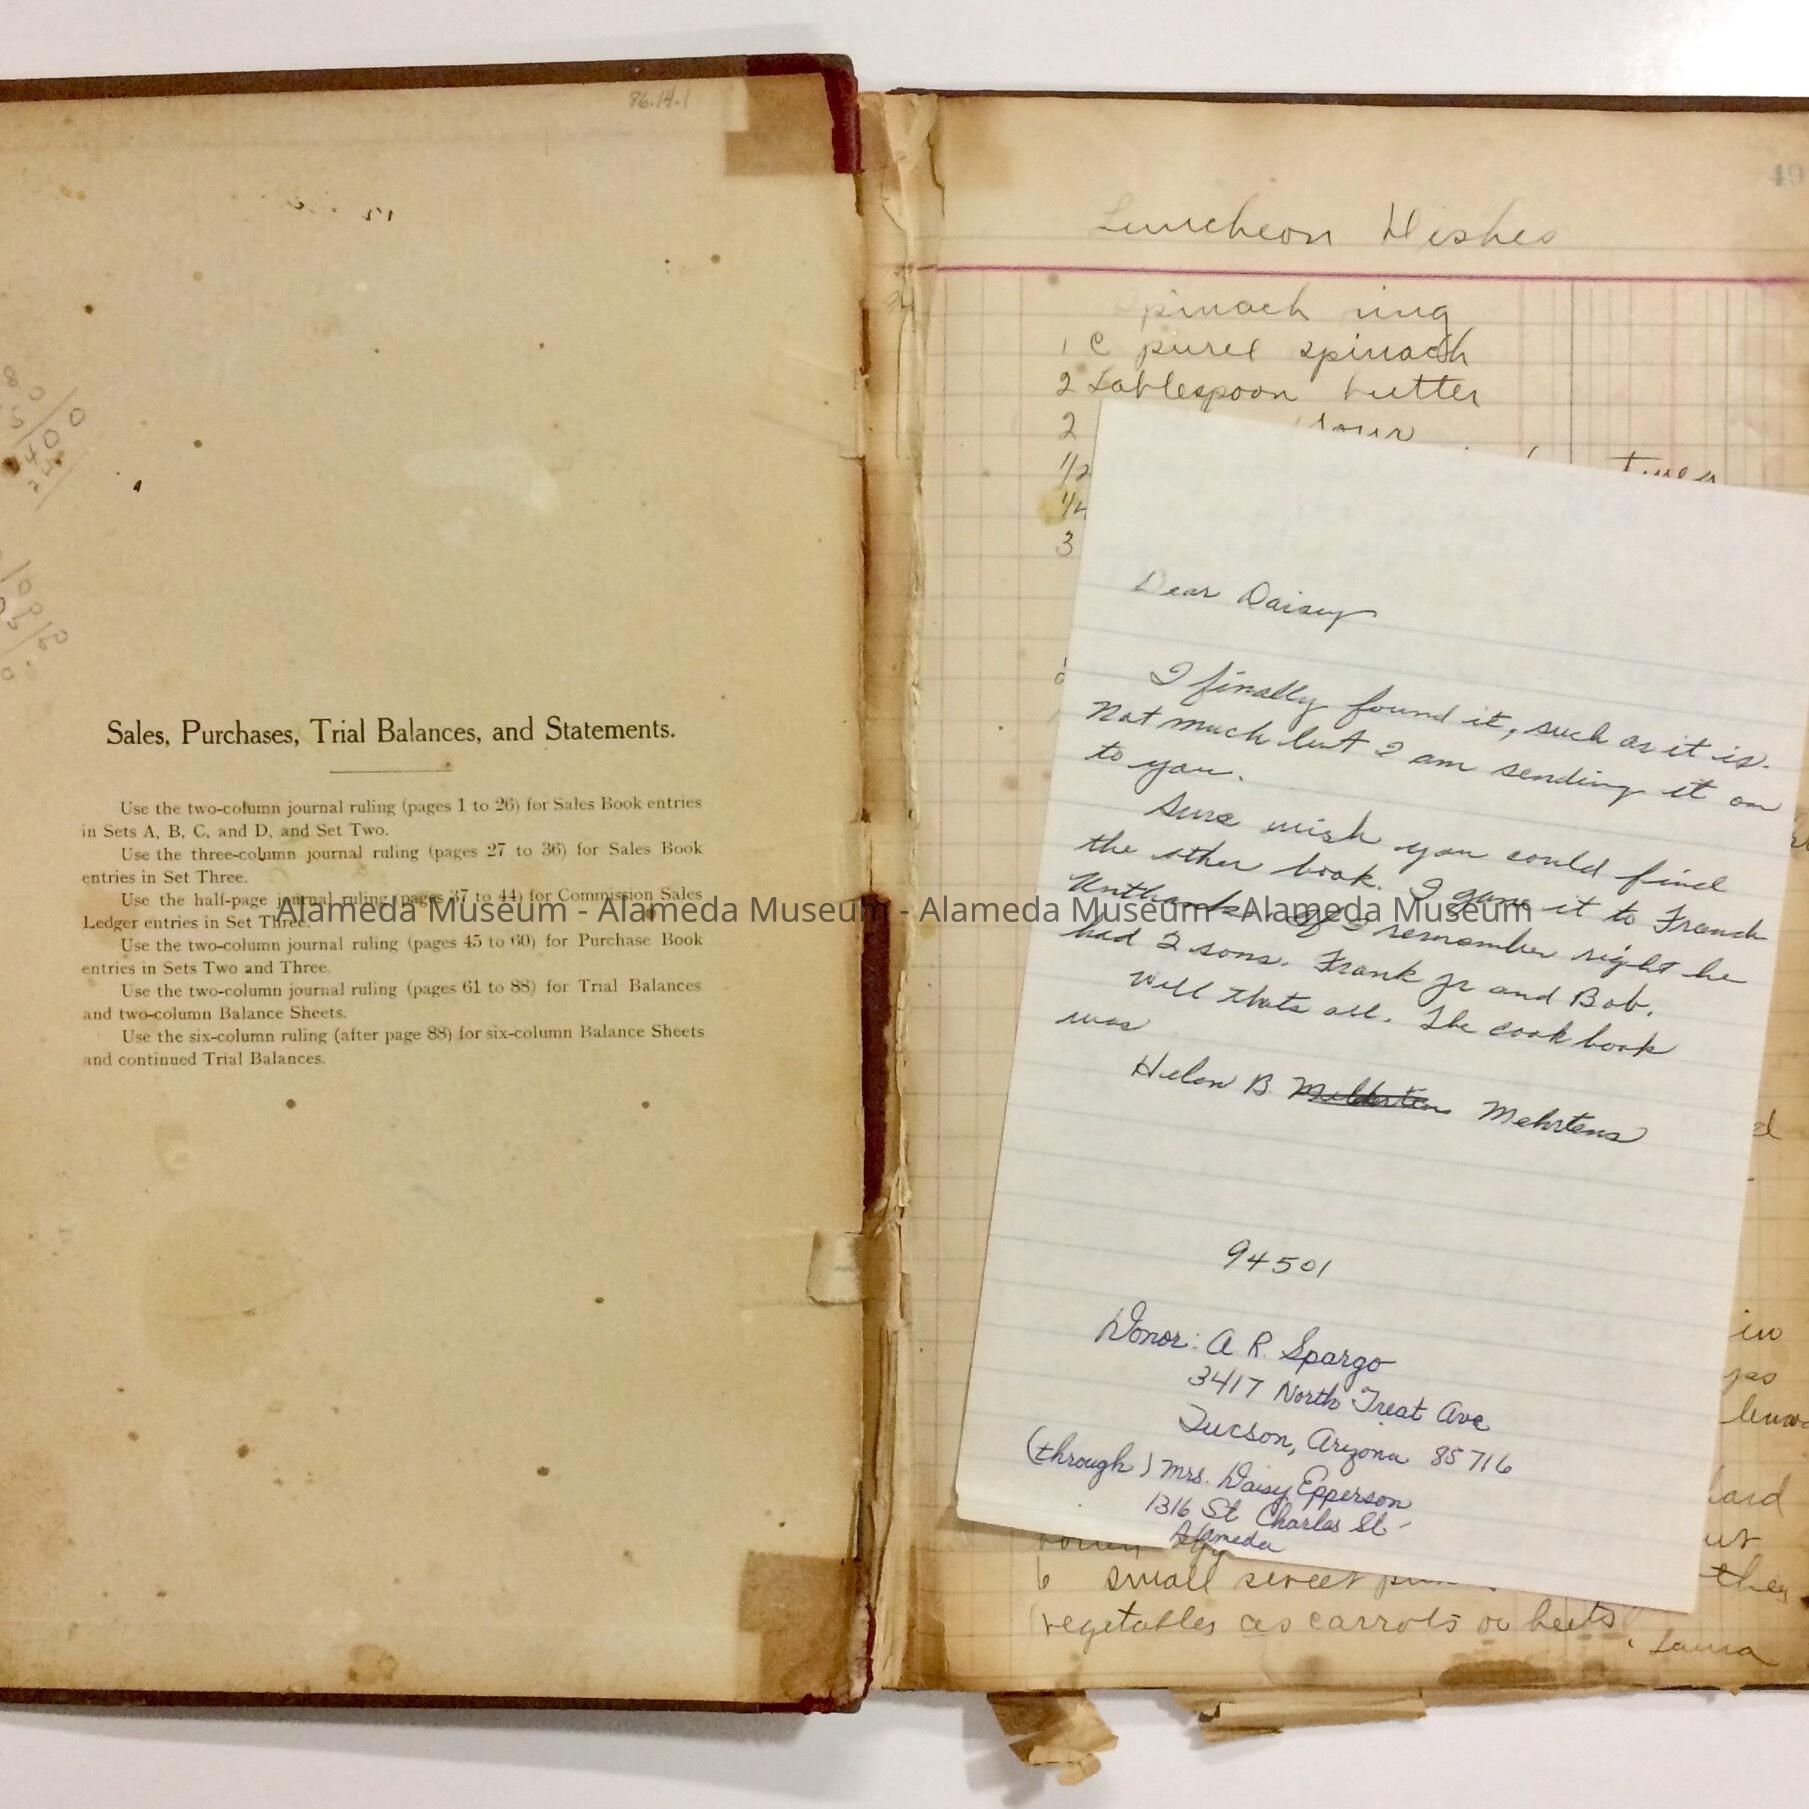 86.14.1
Sales, Purchases, Trial Balances, and Statements.
Use the two-column journal ruling (pages 1 to 26) for Sales Book entries
in Sets A, B, C, and D, and Set Two.
Use the three-column journal ruling (pages 27 to 36) for Sales Book
entries in Set Three.
Use the half-page journal ruling (pages 37 to 44) for Commission Sales
Ledger entries in Set Three.
Use the two-column journal ruling (pages 45 to 60) for Purchase Book
entries in Sets Two and Three.
Use the two-column journal ruling (pages 61 to 88) for Trial Balances
and two-column Balance Sheets.
Use the six-column ruling (after page 88) for six-column Balance Sheets
and continued Trial Balances.
Alameda Museum - Alameda Museum - Alameda Museum - Alameda Museum
49
Luncheon Dishes
Spinach ring
1 c puree spinach
2 tablespoon butter
2
1/2
1/4
3
Dear Daisy
I finally found it, such as it is.
Not much but I am sending it on
to you.
Sure wish you could find
the other book. I gave it to Frank
Unthank. If I remember right he
had 2 sons. Frank Jr and Bob.
Well thats all. The cook book
was
Helen B. Mehrtens
94501
Donor: A. R. Spargo
3417 North Treat Ave
Tucson, Arizona 85716
(through) Mrs. Daisy Epperson
1316 St Charles St.
Alameda
6 small sweet
vegetables as carrots or beets.
Laura